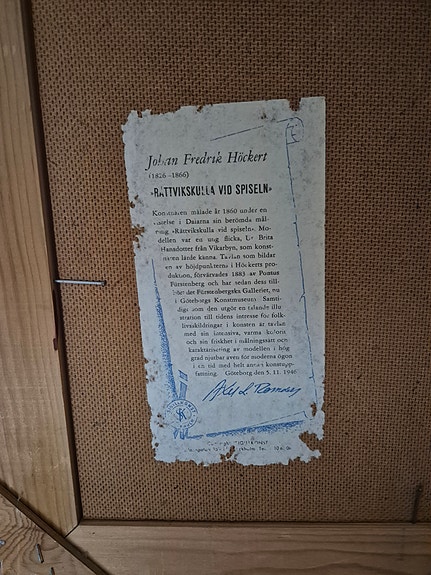 Johan Fredrik Höckert
(1826–1866)
»RÄTTVIKSKULLA VID SPISELN»
Konstnären målade år 1860 under en
vistelse i Dalarna sin berömda mål-
ning »Rättvikskulla vid spiseln». Mo-
dellen var en ung flicka, Brita
Hansdotter från Vikarbyn, som konst-
nären lärde känna. Tavlan som bildar
en av höjdpunkterna i Höckerts pro-
duktion, förvärvades 1883 av Pontus
Fürstenberg och har sedan dess till-
hört det Fürstenbergska Galleriet, nu
i Göteborgs Konstmuseum. Samti-
digt som den utgör en talande illu-
stration till tidens intresse för folk-
livsskildringar i konsten är tavlan
med sin intensiva, varma kolorit
och sin friskhet i målningssätt och
karaktärisering av modellen i hög
grad njutbar även för moderna ögon
i en tid med helt annan konstupp-
fattning. Göteborg den 5.11.1946
Axel L. Romdahl